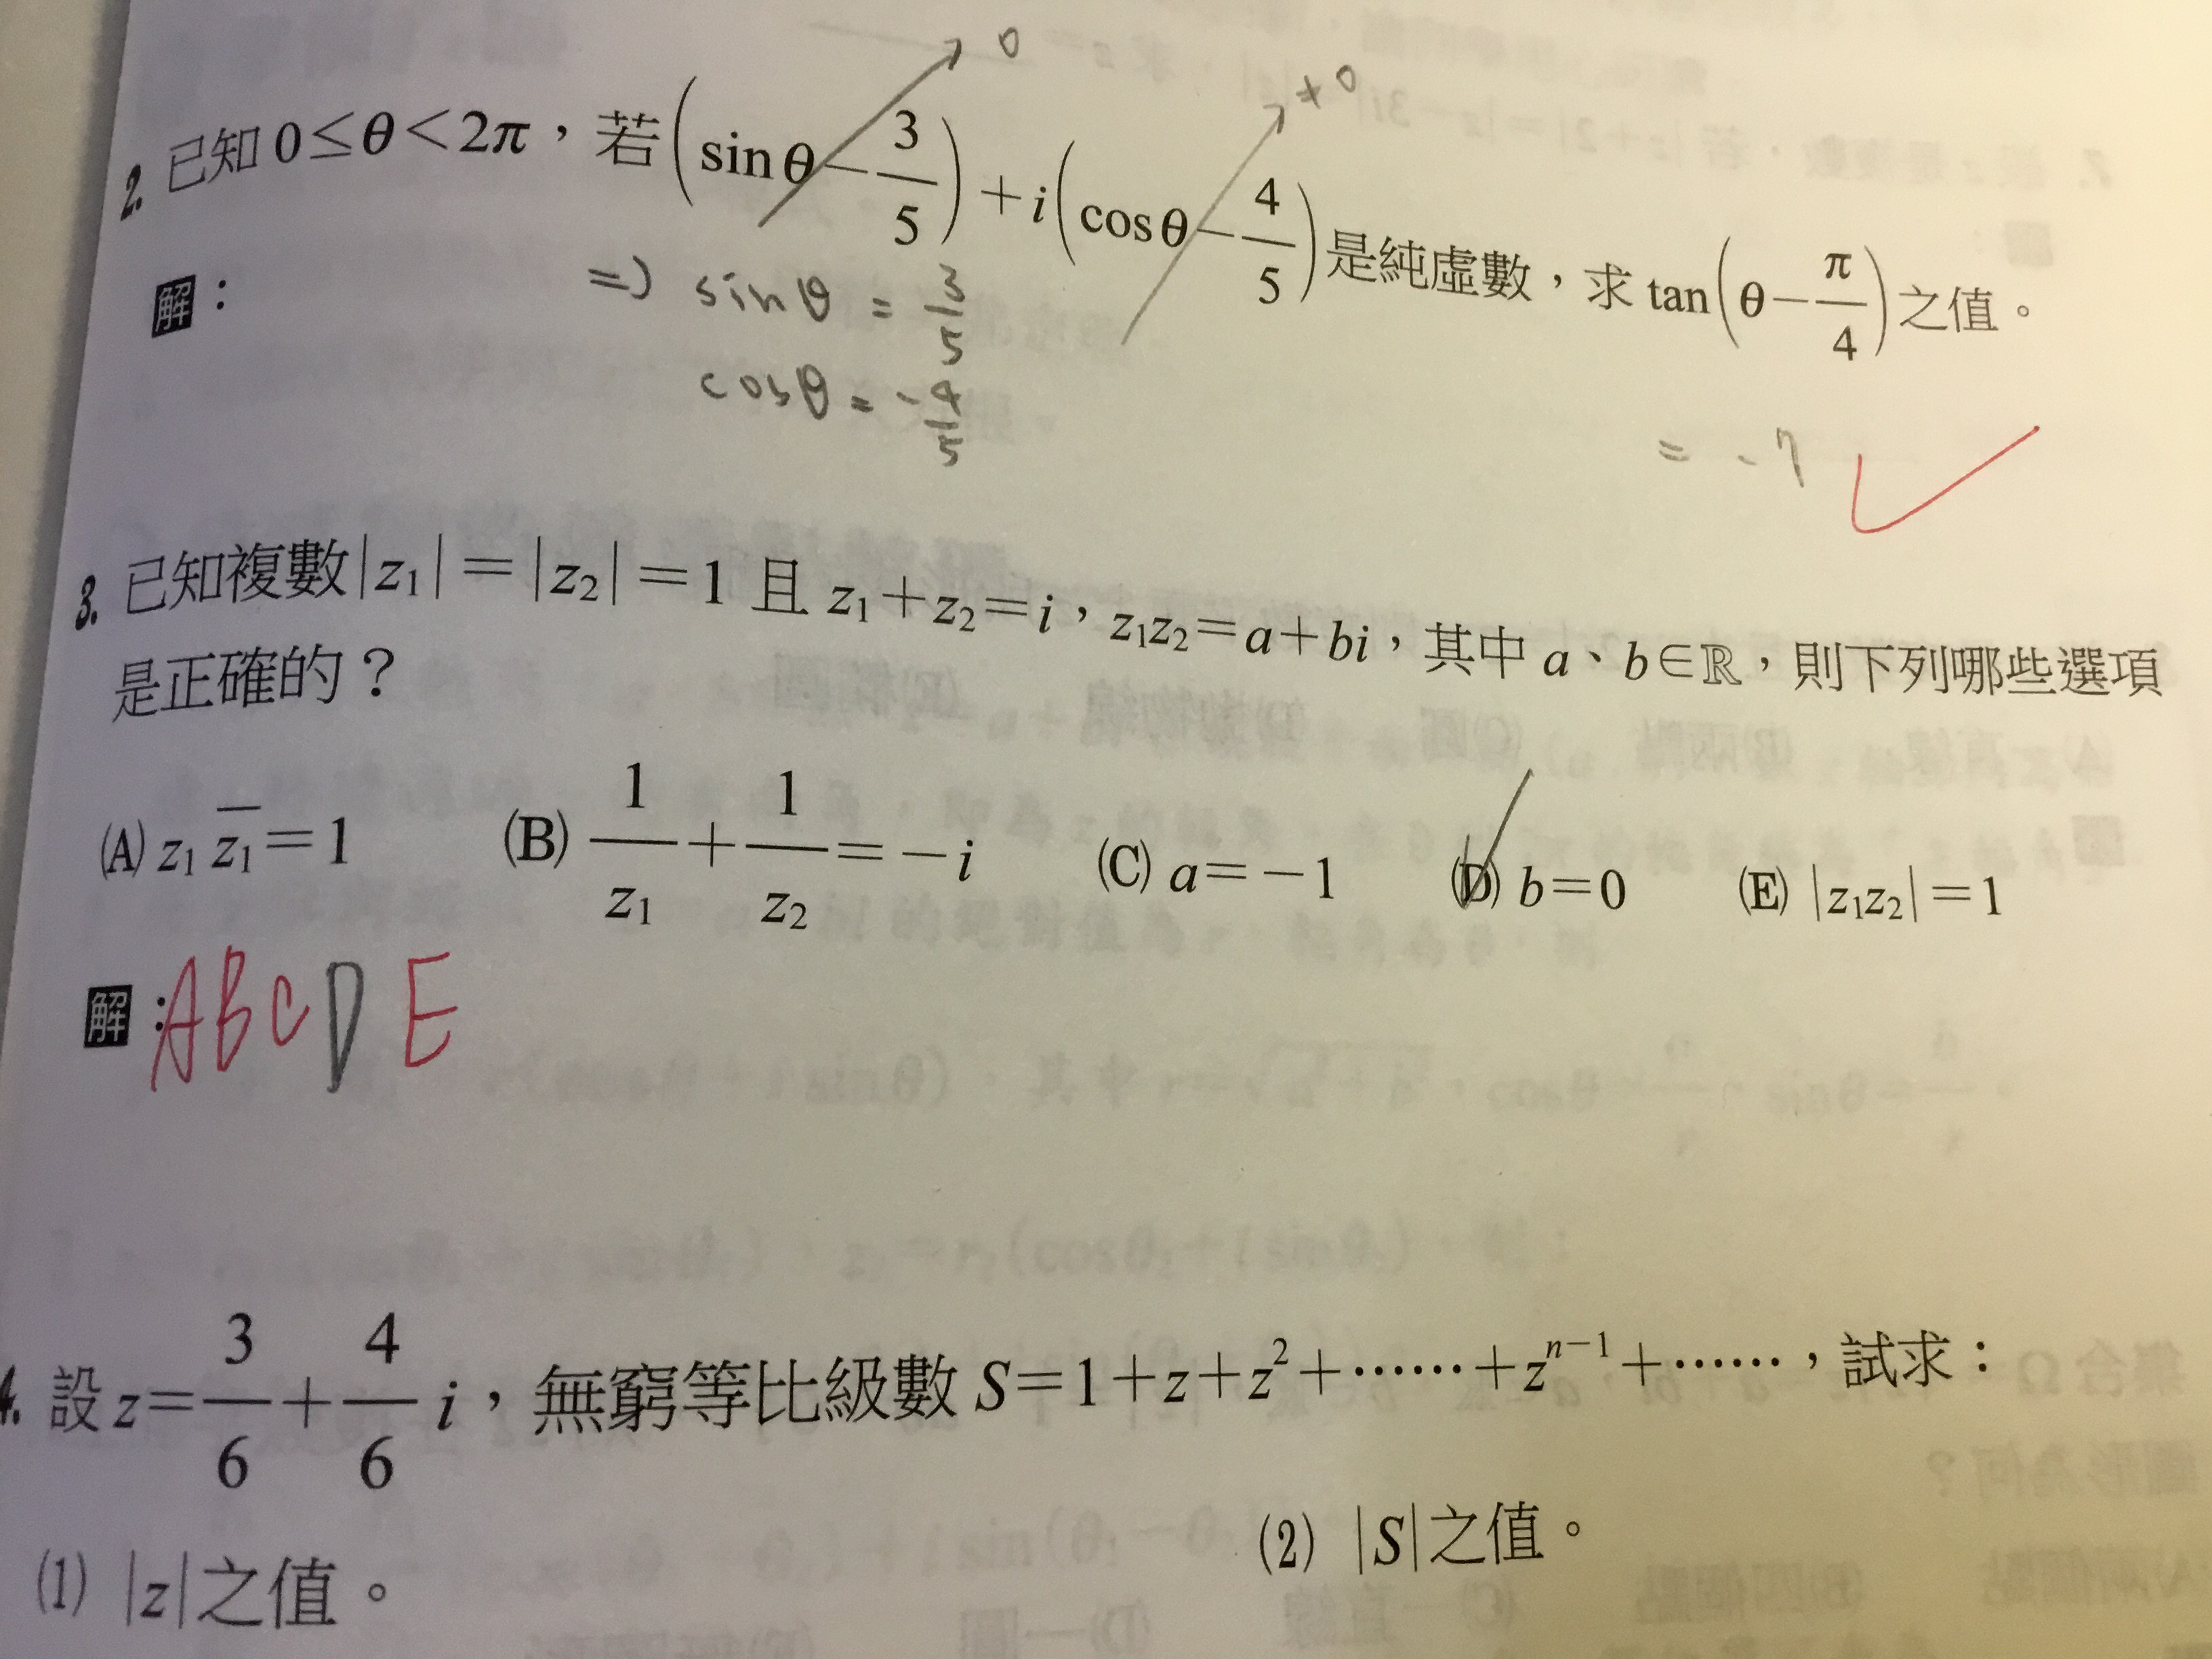 0 ≠0
2. 已知 0≤θ<2π，若(sinθ－3/5)＋i(cosθ－4/5)是純虛數，求 tan(θ－π/4)之值。
解：
⇒ sinθ = 3/5
cosθ = -4/5
= -7
3. 已知複數|z₁|＝|z₂|＝1 且 z₁＋z₂＝i，z₁z₂＝a＋bi，其中 a、b∈ℝ，則下列哪些選項
是正確的？
(A) z₁ z̅₁＝1 (B) 1/z₁＋1/z₂＝－i (C) a＝－1 (D) b＝0 (E) |z₁z₂|＝1
解：ABCDE
4. 設 z＝3/6＋4/6 i，無窮等比級數 S＝1＋z＋z²＋……＋zⁿ⁻¹＋……，試求：
(1) |z|之值。 (2) |S|之值。